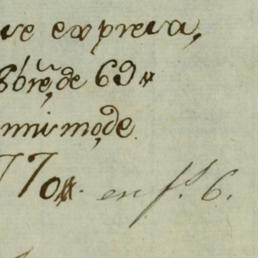 ve expreva,
8bre, de 69
mismo, de
770. en f.s 6.